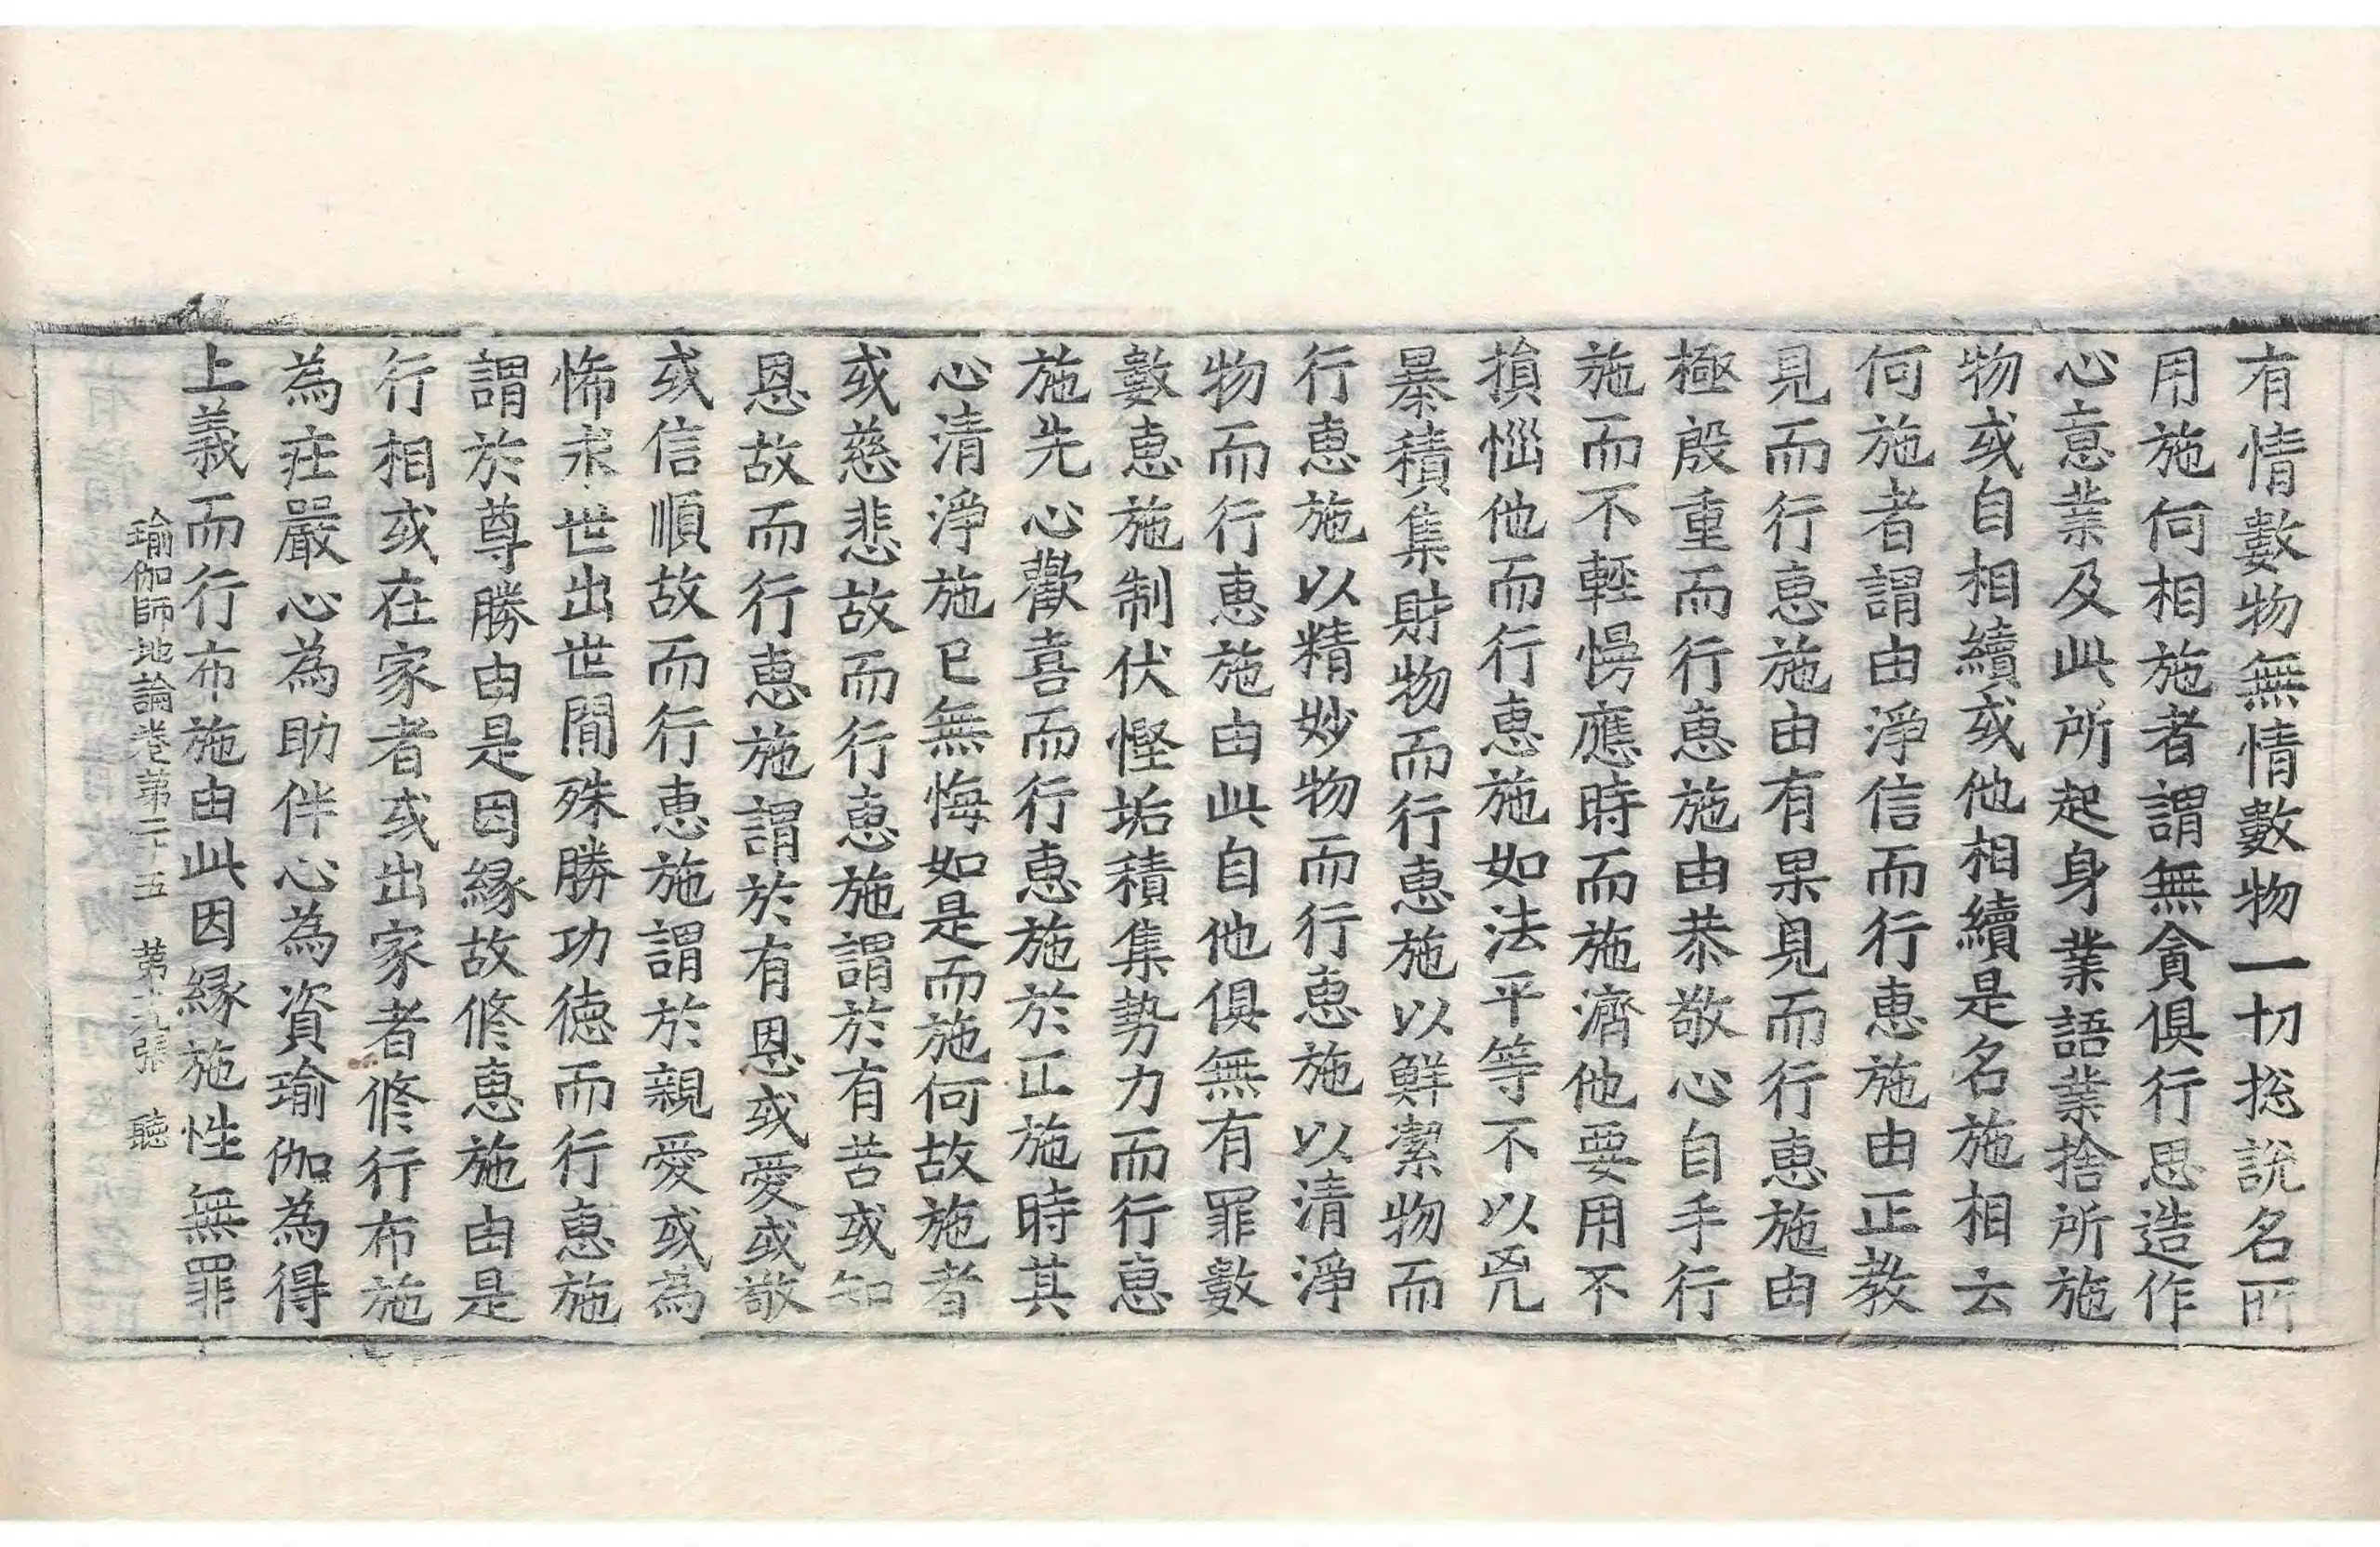 有情數物無情數物一切捴說名所
用施何相施者謂無貪俱行思造作
心意業及此所起身業語業捨所施
物或自相續或他相續是名施相云
何施者謂由淨信而行恵施由正教
見而行恵施由有果見而行恵施由
極殷重而行恵施由恭敬心自手行
施而不輕慢應時而施濟他要用不
損惱他而行恵施如法平等不以兇
暴積集財物而行恵施以鮮潔物而
行恵施以精妙物而行恵施以清淨
物而行恵施由此自他俱無有罪數
數恵施制伏慳垢積集勢力而行恵
施先心歡喜而行恵施於正施時其
心清淨施已無悔如是而施何故施者
或慈悲故而行恵施謂於有苦或知
恩故而行恵施謂於有恩或愛或敬
或信順故而行恵施謂於親愛或為
悕求世出世間殊勝功徳而行恵施
謂於尊勝由是因縁故修恵施由是
行相或在家者或出家者修行布施
為莊嚴心為助伴心為資瑜伽為得
上義而行布施由此因縁施性無罪
瑜伽師地論卷第二十五 第十九張 聽